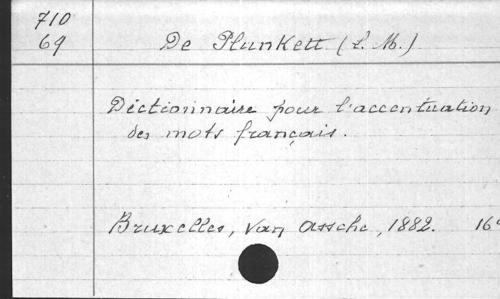 710
69
De Plunkett (L. M.)
Dictionnaire pour l'accentuation
des mots français.
Bruxelles, Van Assche, 1882. 16